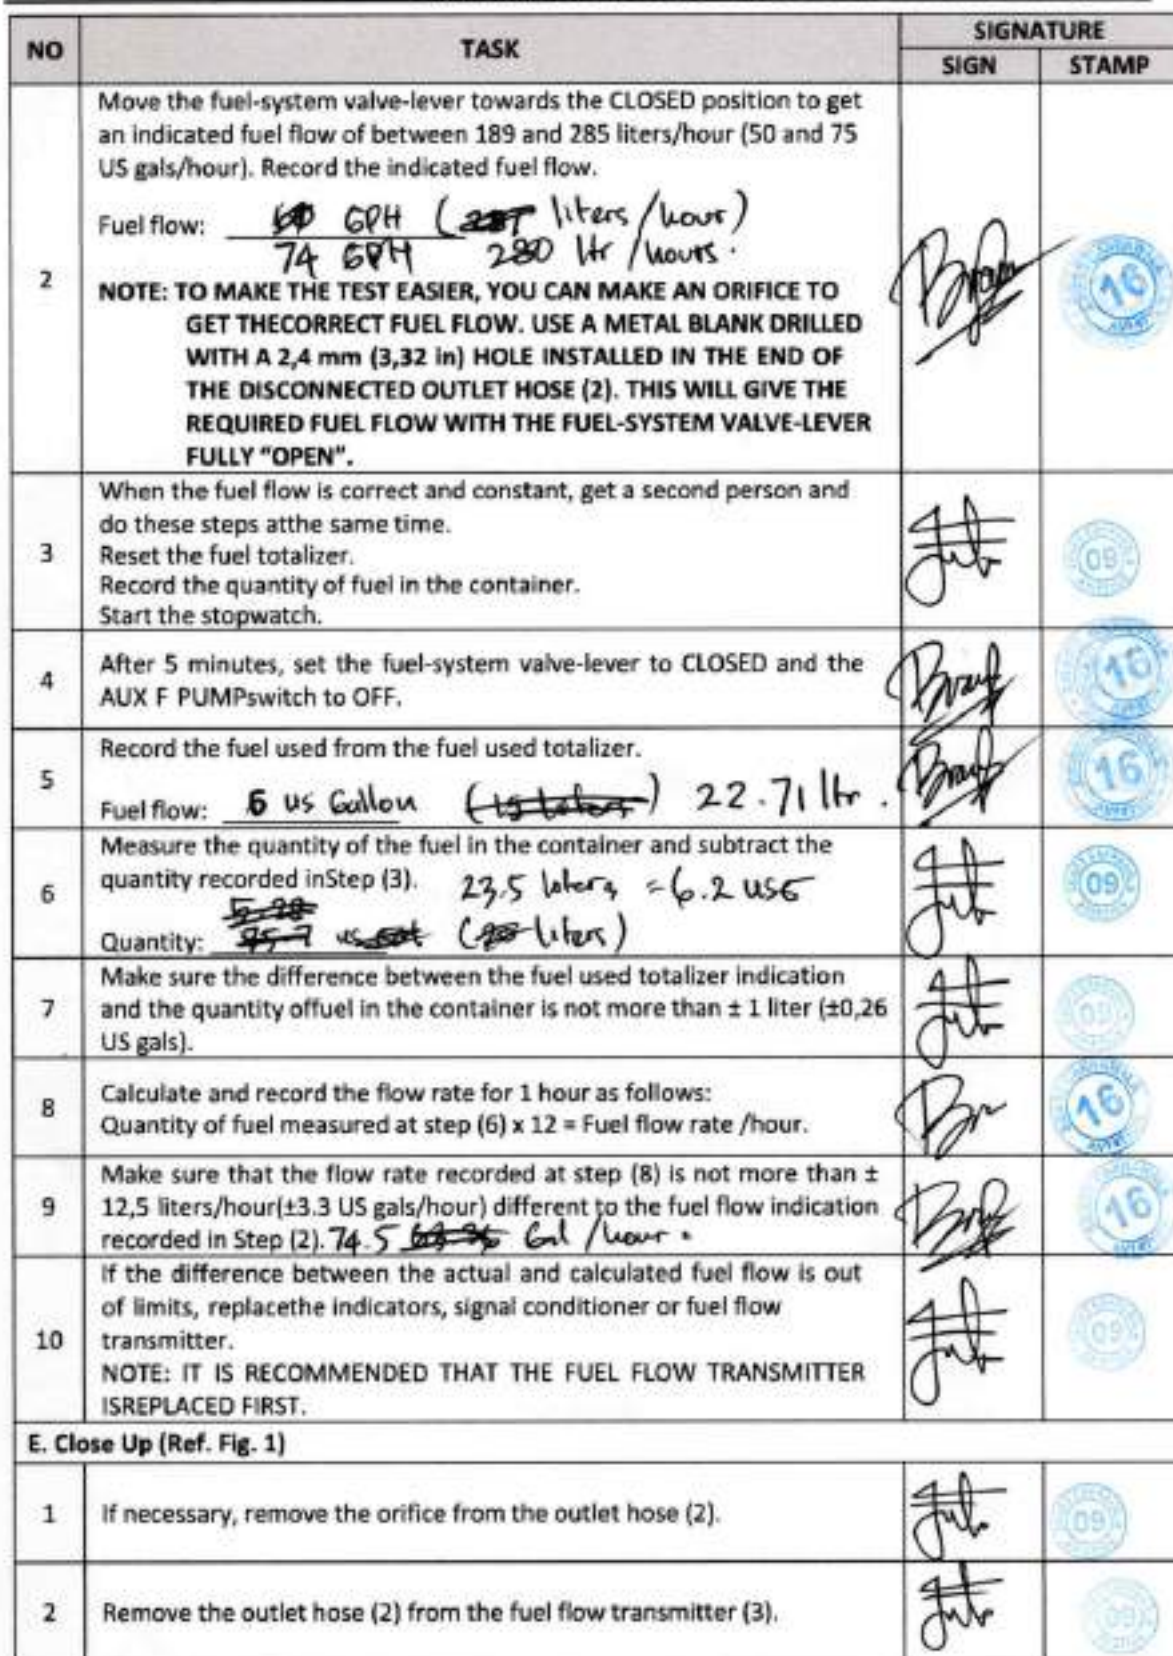 NO
TASK
SIGNATURE
SIGN
STAMP
2
Move the fuel-system valve-lever towards the CLOSED position to get
an indicated fuel flow of between 189 and 285 liters/hour (50 and 75
US gals/hour). Record the indicated fuel flow.
Fuel flow: GPH ( liters/hour)
74 GPH 280 ltr /hours.
NOTE: TO MAKE THE TEST EASIER, YOU CAN MAKE AN ORIFICE TO
GET THECORRECT FUEL FLOW. USE A METAL BLANK DRILLED
WITH A 2,4 mm (3,32 in) HOLE INSTALLED IN THE END OF
THE DISCONNECTED OUTLET HOSE (2). THIS WILL GIVE THE
REQUIRED FUEL FLOW WITH THE FUEL-SYSTEM VALVE-LEVER
FULLY "OPEN".
16
3
When the fuel flow is correct and constant, get a second person and
do these steps atthe same time.
Reset the fuel totalizer.
Record the quantity of fuel in the container.
Start the stopwatch.
09
4
After 5 minutes, set the fuel-system valve-lever to CLOSED and the
AUX F PUMPswitch to OFF.
16
5
Record the fuel used from the fuel used totalizer.
Fuel flow: 6 US Gallon ( ) 22.71 ltr.
16
6
Measure the quantity of the fuel in the container and subtract the
quantity recorded inStep (3). 23.5 liters = 6.2 USG
Quantity: us ( liters)
09
7
Make sure the difference between the fuel used totalizer indication
and the quantity offuel in the container is not more than ± 1 liter (±0,26
US gals).
09
8
Calculate and record the flow rate for 1 hour as follows:
Quantity of fuel measured at step (6) x 12 = Fuel flow rate /hour.
16
9
Make sure that the flow rate recorded at step (8) is not more than ±
12,5 liters/hour(±3.3 US gals/hour) different to the fuel flow indication
recorded in Step (2). 74.5 Gal /hour.
16
10
If the difference between the actual and calculated fuel flow is out
of limits, replacethe indicators, signal conditioner or fuel flow
transmitter.
NOTE: IT IS RECOMMENDED THAT THE FUEL FLOW TRANSMITTER
ISREPLACED FIRST.
09
E. Close Up (Ref. Fig. 1)
1
If necessary, remove the orifice from the outlet hose (2).
09
2
Remove the outlet hose (2) from the fuel flow transmitter (3).
09